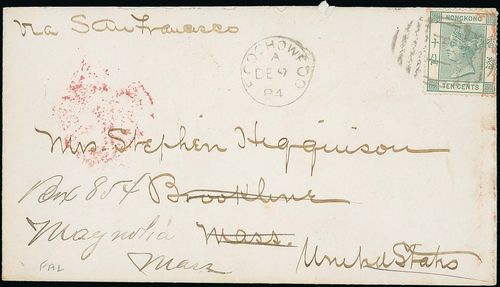 via San Francisco
HONGKONG
TEN CENTS
FOOCHOWFOO
A
DE 9
84
Mrs. Stephen Higginson
Box 854 Brookline
Magnolia Mass.
Mass United States